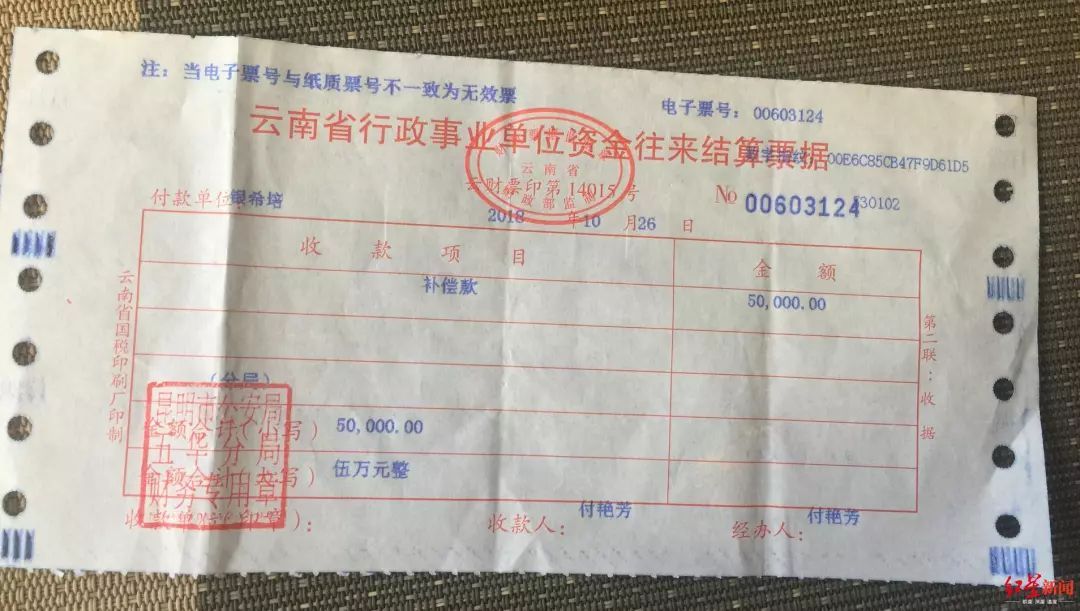 注：当电子票号与纸质票号不一致为无效票
电子票号：00603124
云南省行政事业单位资金往来结算票据
00E6C85CB47F9D61D5
云南省
云财票印第14015号
付款单位 银希培
2018年10月26日
№ 00603124
530102
收款项目 金额
补偿款 50,000.00
(分局)
金额合计(小写) 50,000.00
金额合计(大写) 伍万元整
昆明市公安局
五华分局
财务专用章
收款单位(印章)：
收款人：付艳芳
经办人：付艳芳
云南省国税印刷厂印制
第二联：收据
红星新闻